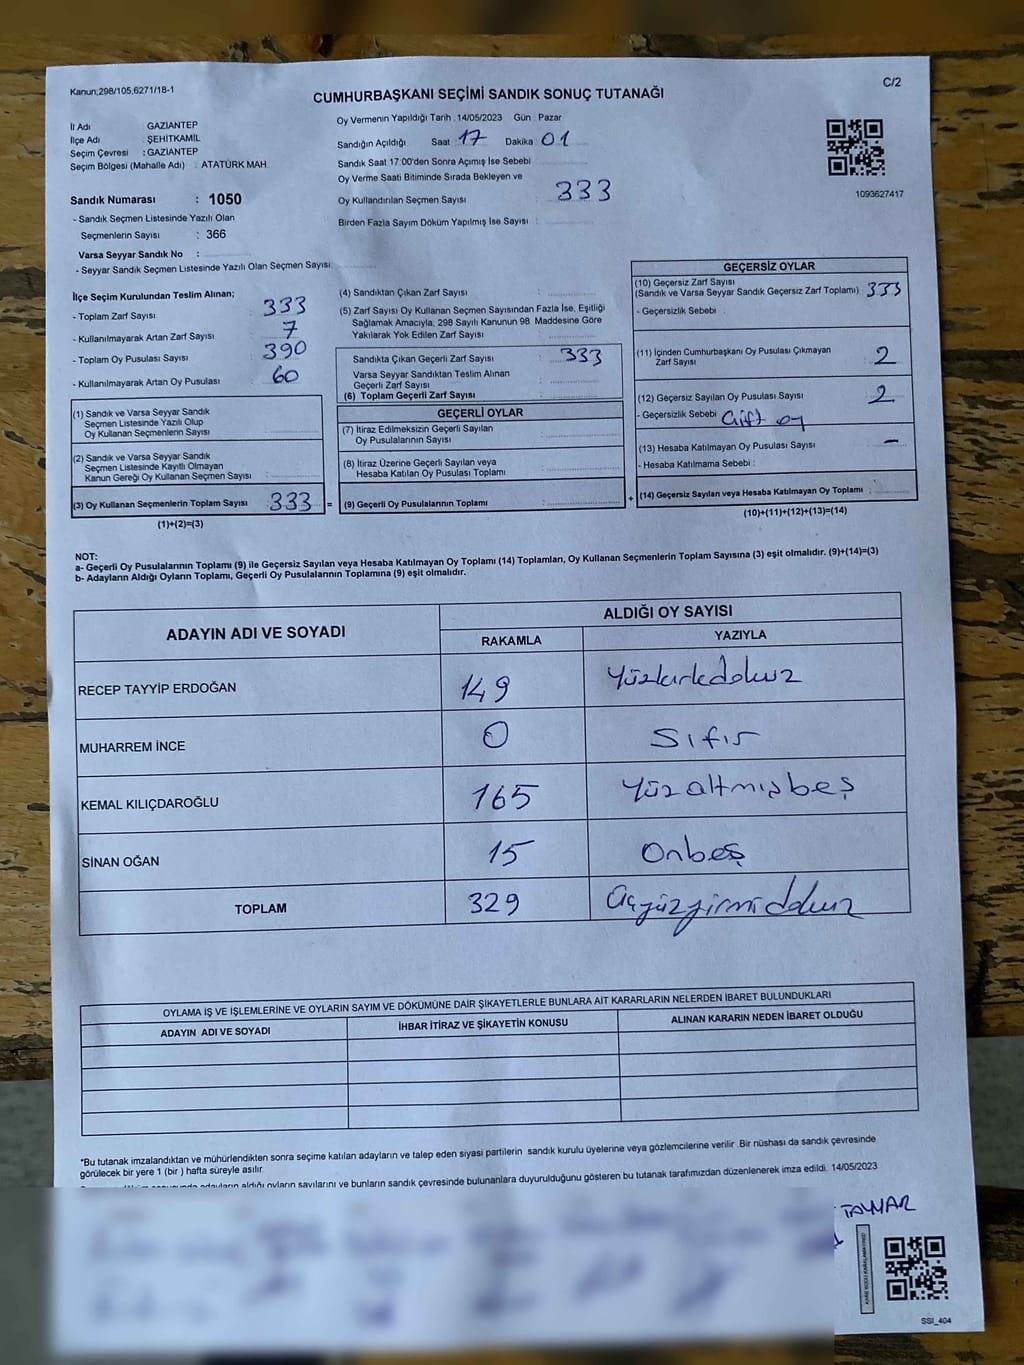 Kanun;298/105,6271/18-1
C/2
CUMHURBAŞKANI SEÇİMİ SANDIK SONUÇ TUTANAĞI
İl Adı : GAZİANTEP
İlçe Adı : ŞEHİTKAMİL
Seçim Çevresi : GAZİANTEP
Seçim Bölgesi (Mahalle Adı) : ATATÜRK MAH
Sandık Numarası : 1050
- Sandık Seçmen Listesinde Yazılı Olan
Seçmenlerin Sayısı : 366
Varsa Seyyar Sandık No :
- Seyyar Sandık Seçmen Listesinde Yazılı Olan Seçmen Sayısı:
Oy Vermenin Yapıldığı Tarih : 14/05/2023 Gün : Pazar
Sandığın Açıldığı Saat : 17 Dakika : 01
Sandık Saat 17:00'den Sonra Açımış İse Sebebi
Oy Verme Saati Bitiminde Sırada Bekleyen ve
Oy Kullandırılan Seçmen Sayısı : 333
Birden Fazla Sayım Döküm Yapılmış İse Sayısı :
1093627417
İlçe Seçim Kurulundan Teslim Alınan;
- Toplam Zarf Sayısı : 333
- Kullanılmayarak Artan Zarf Sayısı : 7
- Toplam Oy Pusulası Sayısı : 390
- Kullanılmayarak Artan Oy Pusulası : 60
(1) Sandık ve Varsa Seyyar Sandık
Seçmen Listesinde Yazılı Olup
Oy Kullanan Seçmenlerin Sayısı :
(2) Sandık ve Varsa Seyyar Sandık
Seçmen Listesinde Kayıtlı Olmayan
Kanun Gereği Oy Kullanan Seçmen Sayısı :
(3) Oy Kullanan Seçmenlerin Toplam Sayısı : 333 =
(1)+(2)=(3)
(4) Sandıktan Çıkan Zarf Sayısı :
(5) Zarf Sayısı Oy Kullanan Seçmen Sayısından Fazla İse, Eşitliği
Sağlamak Amacıyla, 298 Sayılı Kanunun 98. Maddesine Göre
Yakılarak Yok Edilen Zarf Sayısı :
Sandıkta Çıkan Geçerli Zarf Sayısı : 333
Varsa Seyyar Sandıktan Teslim Alınan
Geçerli Zarf Sayısı :
(6) Toplam Geçerli Zarf Sayısı :
GEÇERLİ OYLAR
(7) İtiraz Edilmeksizin Geçerli Sayılan
Oy Pusulalarının Sayısı :
(8) İtiraz Üzerine Geçerli Sayılan veya
Hesaba Katılan Oy Pusulası Toplamı :
(9) Geçerli Oy Pusulalarının Toplamı : +
GEÇERSİZ OYLAR
(10) Geçersiz Zarf Sayısı
(Sandık ve Varsa Seyyar Sandık Geçersiz Zarf Toplamı) : 333
- Geçersizlik Sebebi :
(11) İçinden Cumhurbaşkanı Oy Pusulası Çıkmayan
Zarf Sayısı : 2
(12) Geçersiz Sayılan Oy Pusulası Sayısı : 2
- Geçersizlik Sebebi : Çift oy
(13) Hesaba Katılmayan Oy Pusulası Sayısı : -
- Hesaba Katılmama Sebebi :
(14) Geçersiz Sayılan veya Hesaba Katılmayan Oy Toplamı :
(10)+(11)+(12)+(13)=(14)
NOT:
a- Geçerli Oy Pusulalarının Toplamı (9) ile Geçersiz Sayılan veya Hesaba Katılmayan Oy Toplamı (14) Toplamları, Oy Kullanan Seçmenlerin Toplam Sayısına (3) eşit olmalıdır. (9)+(14)=(3)
b- Adayların Aldığı Oyların Toplamı, Geçerli Oy Pusulalarının Toplamına (9) eşit olmalıdır.
ADAYIN ADI VE SOYADI
ALDIĞI OY SAYISI
RAKAMLA YAZIYLA
RECEP TAYYİP ERDOĞAN 149 Yüzkırkdokuz
MUHARREM İNCE 0 Sıfır
KEMAL KILIÇDAROĞLU 165 Yüzaltmışbeş
SİNAN OĞAN 15 Onbeş
TOPLAM 329 Üçyüzyirmidokuz
OYLAMA İŞ VE İŞLEMLERİNE VE OYLARIN SAYIM VE DÖKÜMÜNE DAİR ŞİKAYETLERLE BUNLARA AİT KARARLARIN NELERDEN İBARET BULUNDUKLARI
ADAYIN ADI VE SOYADI İHBAR İTİRAZ VE ŞİKAYETİN KONUSU ALINAN KARARIN NEDEN İBARET OLDUĞU
*Bu tutanak imzalandıktan ve mühürlendikten sonra seçime katılan adayların ve talep eden siyasi partilerin sandık kurulu üyelerine veya gözlemcilerine verilir .Bir nüshası da sandık çevresinde
görülecek bir yere 1 (bir ) hafta süreyle asılır.
adayların aldığı oyların sayılarını ve bunların sandık çevresinde bulunanlara duyurulduğunu gösteren bu tutanak tarafımızdan düzenlenerek imza edildi. 14/05/2023
TAYYAR
SSI_404